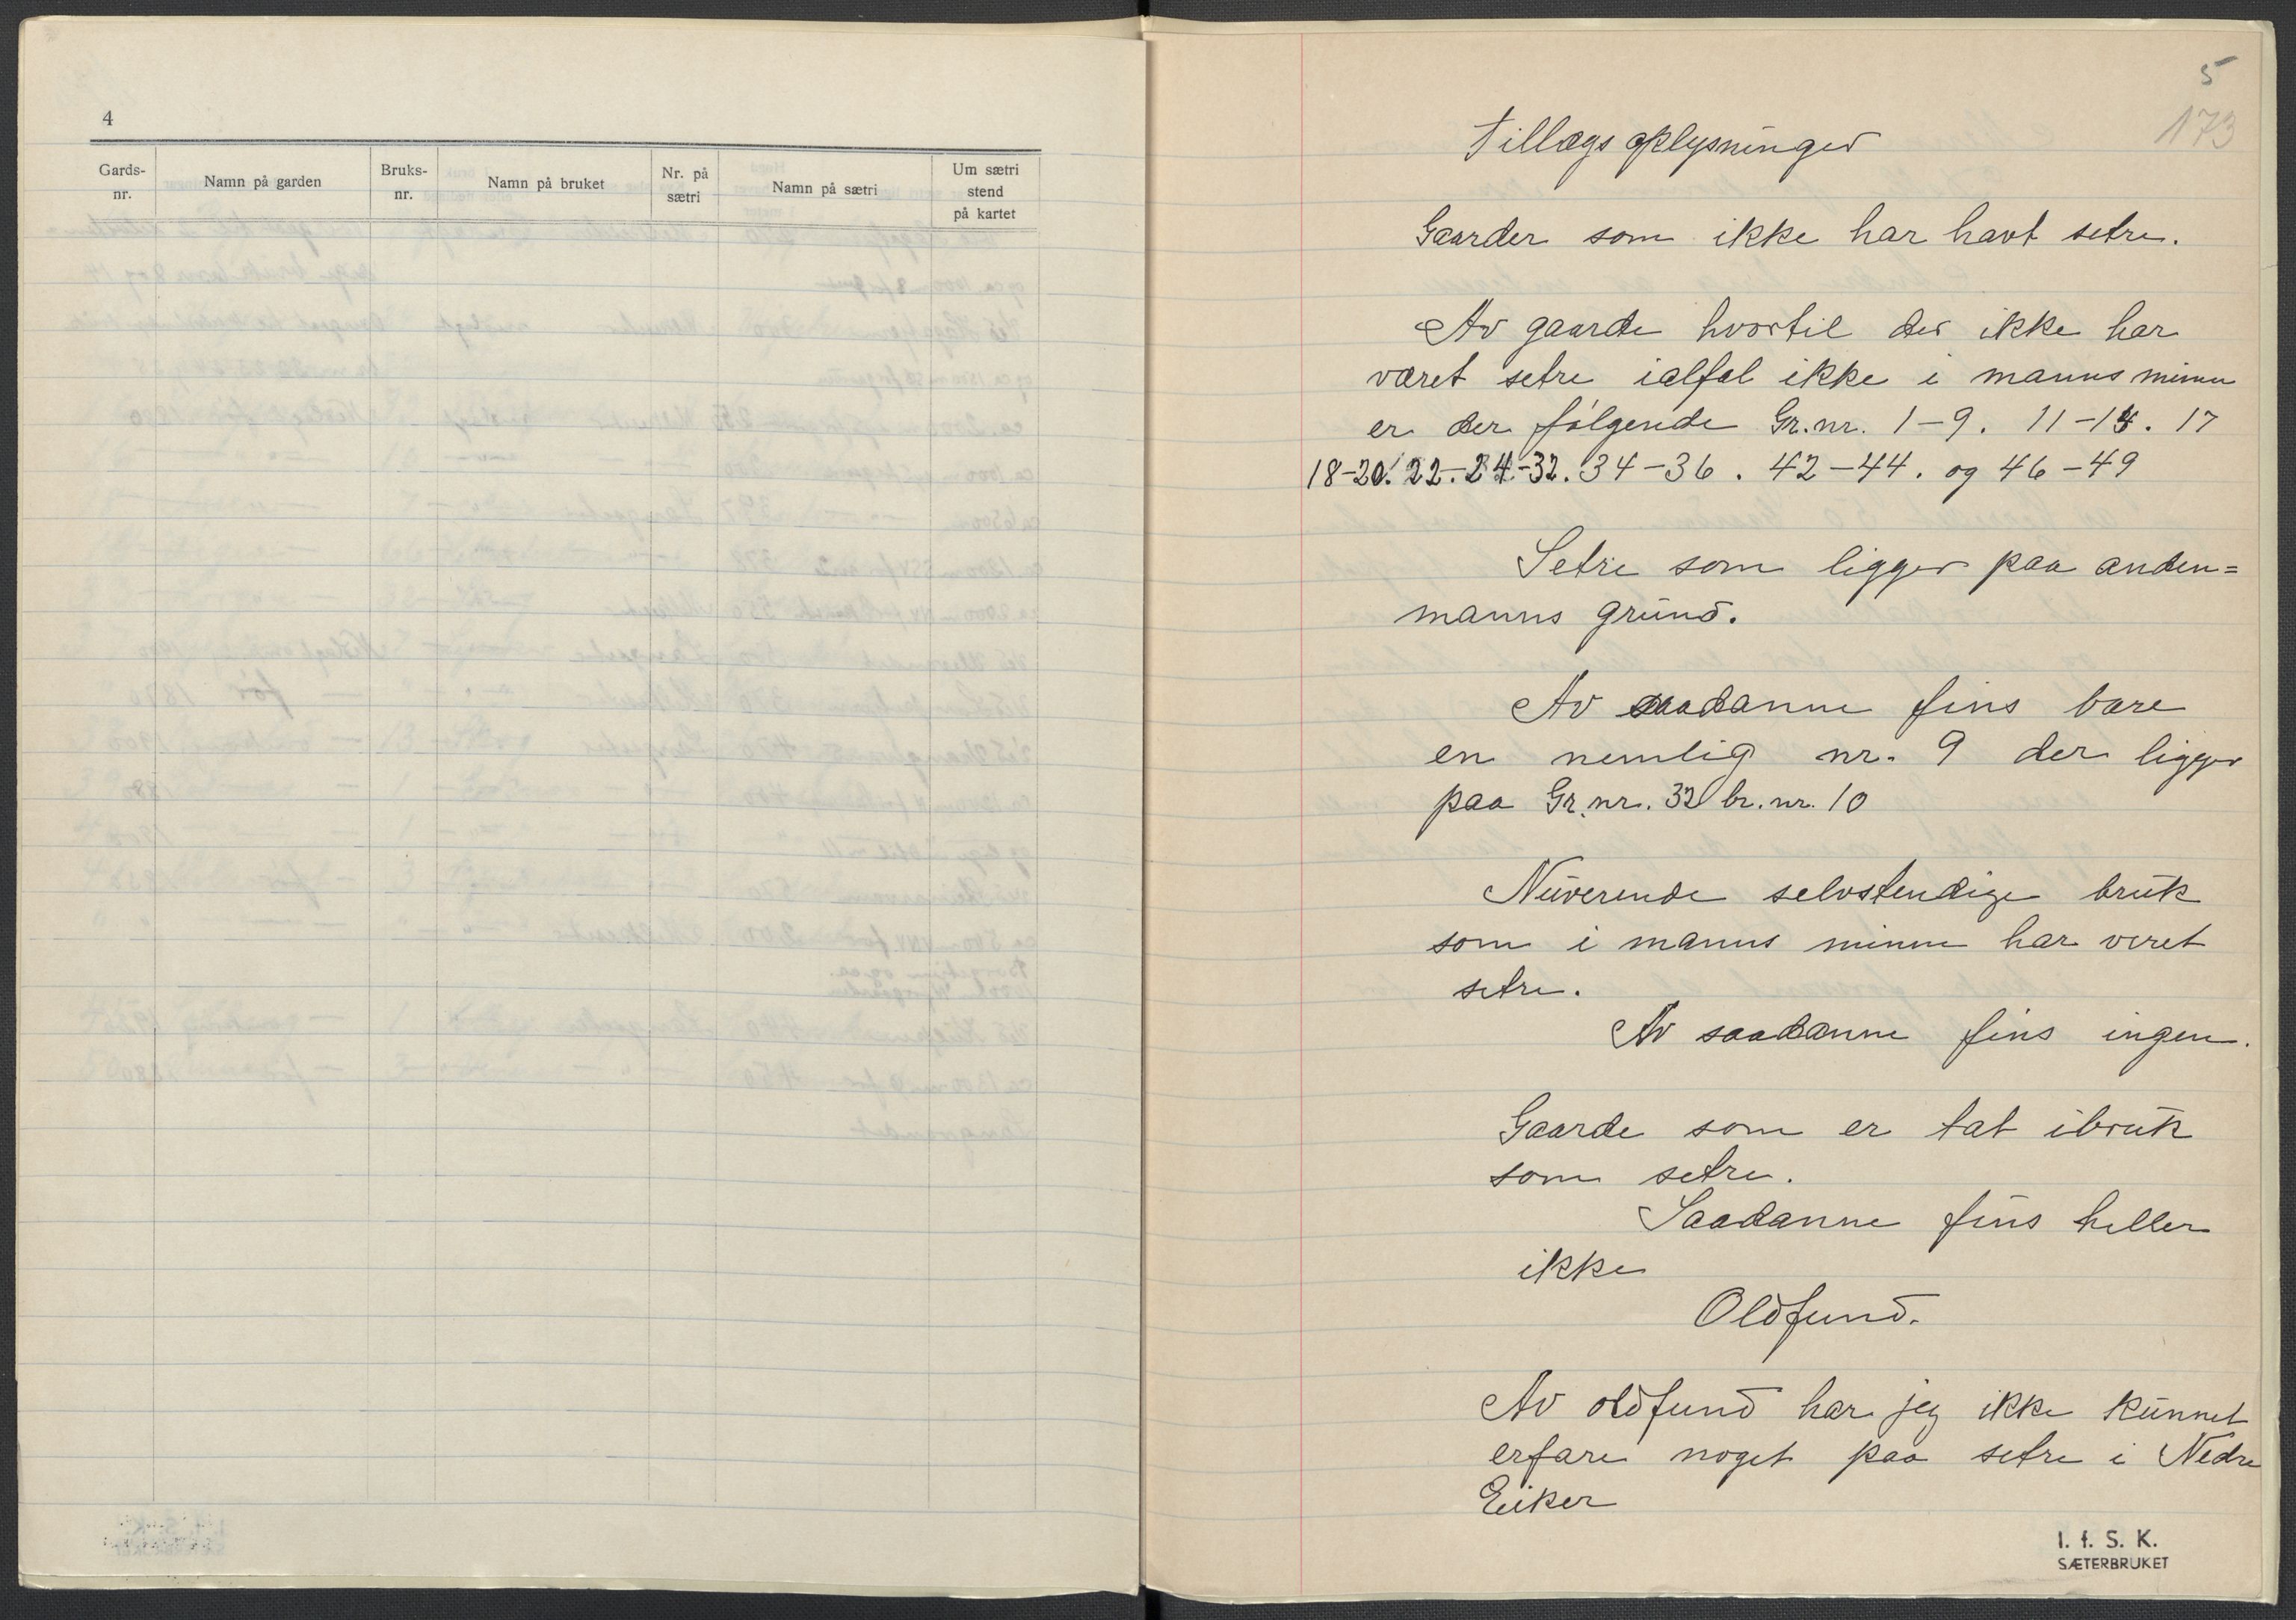 4
Gards-nr.
Namn på garden
Bruks-nr.
Namn på bruket
Nr. på sætri
Namn på sætri
Um sætri stend på kartet
5
173
Tillægs oplysninger
Gaarder som ikke har havt setre.
Av gaarde hvortil der ikke har
været setre ialfal ikke i manns minne
er der følgende Gr. nr. 1-9. 11-14. 17
18-20. 22.-24-32. 34-36. 42-44. og 46-49
Setre som ligger paa anden=
manns grund.
Av saadanne fins bare
en nemlig nr. 9 der ligger
paa Gr. nr. 32 br. nr. 10
Nuverende selvstendige bruk
som i manns minne har veret
setre.
Av saadanne fins ingen.
Gaarde som er tat ibruk
som setre.
Saadanne fins heller
ikke
Oldfund.
Av oldfund har jeg ikke kunnet
erfare noget paa setre i Nedre
Eiker
I. f. S. K.
SÆTERBRUKET